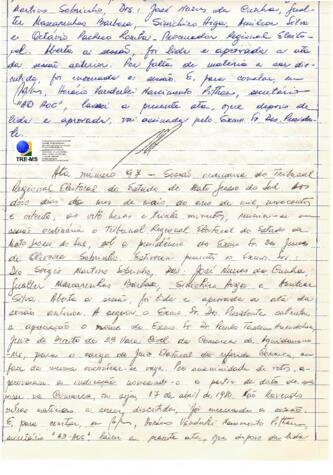 Martins Sobrinho, Drs.: José Nunes da Cunha, Jual-
ter Mascarenhas Barbosa, Simichiro Arga, Amilcar Silva
e Octávio Pacheco , Procurador Regional Eleito-
ral. Aberta a sessão, foi lida e aprovada a ata
da sessão anterior. Por falta de matéria a ser dis-
cutida, foi encerrada a sessão. E, para constar, eu
Horácio Vanderlei Nascimento Pithan, secretário
"AD HOC", lavrei a presente ata, que depois de
lida e aprovada, vai assinada pelo Exmo. Sr. Des. Preside
te.
TRE-MS
Ata número 97 - Sessão ordinária do Tribunal
Regional Eleitoral do Estado de Mato Grosso do Sul. Aos
dois dias do mês de maio do ano de mil, novecentos
e oitenta, às oito horas e trinta minutos, reuniu-se em
sessão ordinária o Tribunal Regional Eleitoral do Estado de
Mato Grosso do Sul, sob a presidência do Exmo. Sr. Des. Jesus
de Oliveira Sobrinho. Estiveram presentes os Exmos. Srs.:
Des. Sérgio Martins Sobrinho, Drs. José Nunes da Cunha
Jualter Mascarenhas Barbosa, Simichiro Arga e Amilcar
Silva. Aberta a sessão, foi lida e aprovada a ata da
sessão anterior. A seguir o Exmo. Sr. Des. Presidente submeteu
a aprovação o nome do Exmo. Sr. Dr. Paulo Tadeu
Juiz de Direito da 2ª Vara Cível da Comarca de Aquidauana-
MS, para o cargo de Juiz Eleitoral da referida Comarca, em
face da mesma encontrar-se vaga. Por unanimidade de votos, a-
provaram a indicação a partir da data de sua
posse na Comarca, ou seja, 17 de abril de 1980. Não havendo
outras matérias a serem discutidas, foi encerrada a sessão.
E, para constar, eu Horácio Vanderlei Nascimento Pithan,
secretário "AD-HOC" lavrei a presente ata, que depois de lida